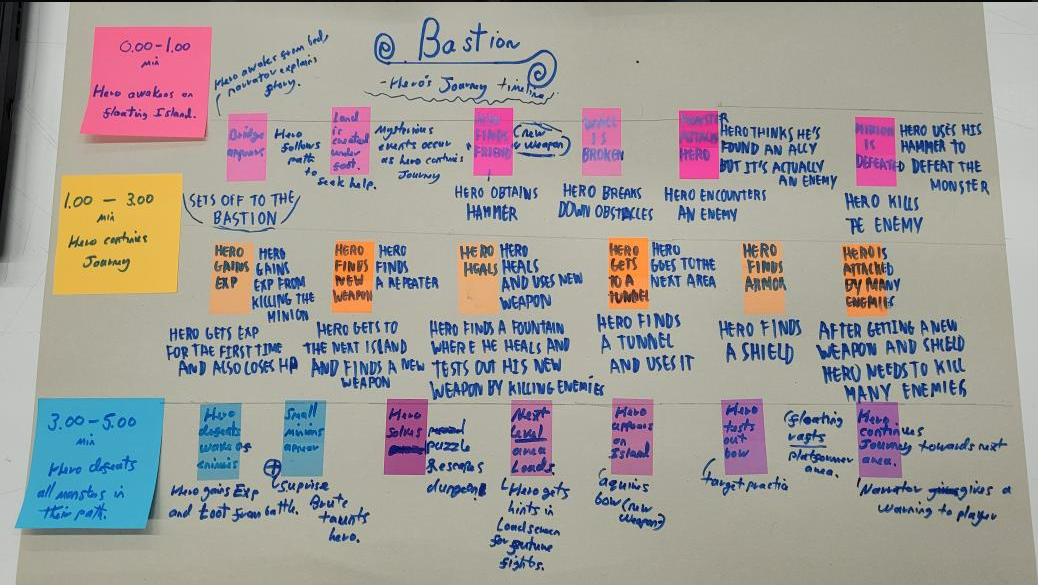 Bastion
- Hero's Journey timeline
0.00-1.00
min
Hero awakens on
floating Island.
Hero awakes from bed,
narrator explains
story.
Bridge
appears
Hero
follows
path
to
seek help.
Land
is
created
under
foot.
Mysterious
events occur
as hero continues
Journey
HERO
FINDS
FRIEND
(new
weapon)
HERO OBTAINS
HAMMER
IS
BROKEN
HERO BREAKS
DOWN OBSTACLES
MONSTER
ATTACK
HERO
HERO THINKS HE'S
FOUND AN ALLY
BUT IT'S ACTUALLY
AN ENEMY
HERO ENCOUNTERS
AN ENEMY
MINION
IS
DEFEATED
HERO USES HIS
HAMMER TO
DEFEAT THE
MONSTER
HERO KILLS
THE ENEMY
1.00 - 3.00
Min
Hero continues
Journey
SETS OFF TO THE
BASTION
HERO
GAINS
EXP
HERO
GAINS
EXP FROM
KILLING THE
MINION
HERO GETS EXP
FOR THE FIRST TIME
AND ALSO LOSES HP
HERO
FINDS
NEW
WEAPON
HERO
FINDS
A REPEATER
HERO GETS TO
THE NEXT ISLAND
AND FINDS A NEW
WEAPON
HERO
HEALS
HERO
HEALS
AND USES NEW
WEAPON
HERO FINDS A FOUNTAIN
WHERE HE HEALS AND
TESTS OUT HIS NEW
WEAPON BY KILLING ENEMIES
HERO
GETS
TO A
TUNNEL
HERO
GOES TO THE
NEXT AREA
HERO FINDS
A TUNNEL
AND USES IT
HERO
FINDS
ARMOR
HERO FINDS
A SHIELD
HERO IS
ATTACKED
BY MANY
ENEMIES
AFTER GETTING A NEW
WEAPON AND SHIELD
HERO NEEDS TO KILL
MANY ENEMIES
3.00-5.00
Min
Hero defeats
all monsters in
their path.
Hero
defeats
waves of
enimies
Hero gains Exp
and Loot from battle.
Small
minions
appear
suprise
Brute
taunts
hero.
Hero
solves
puzzle
& escapes
dungeon
Next
level
area
Loads.
Hero gets
hints in
Load screen
for furture
fights.
Hero
appears
on
Island
aquires
bow (new
weapon)
Hero
tests
out
bow
target practice
(floating
rafts
platformer
area.
Hero
continues
Journey towards next
area.
Narrator gives a
warning to player